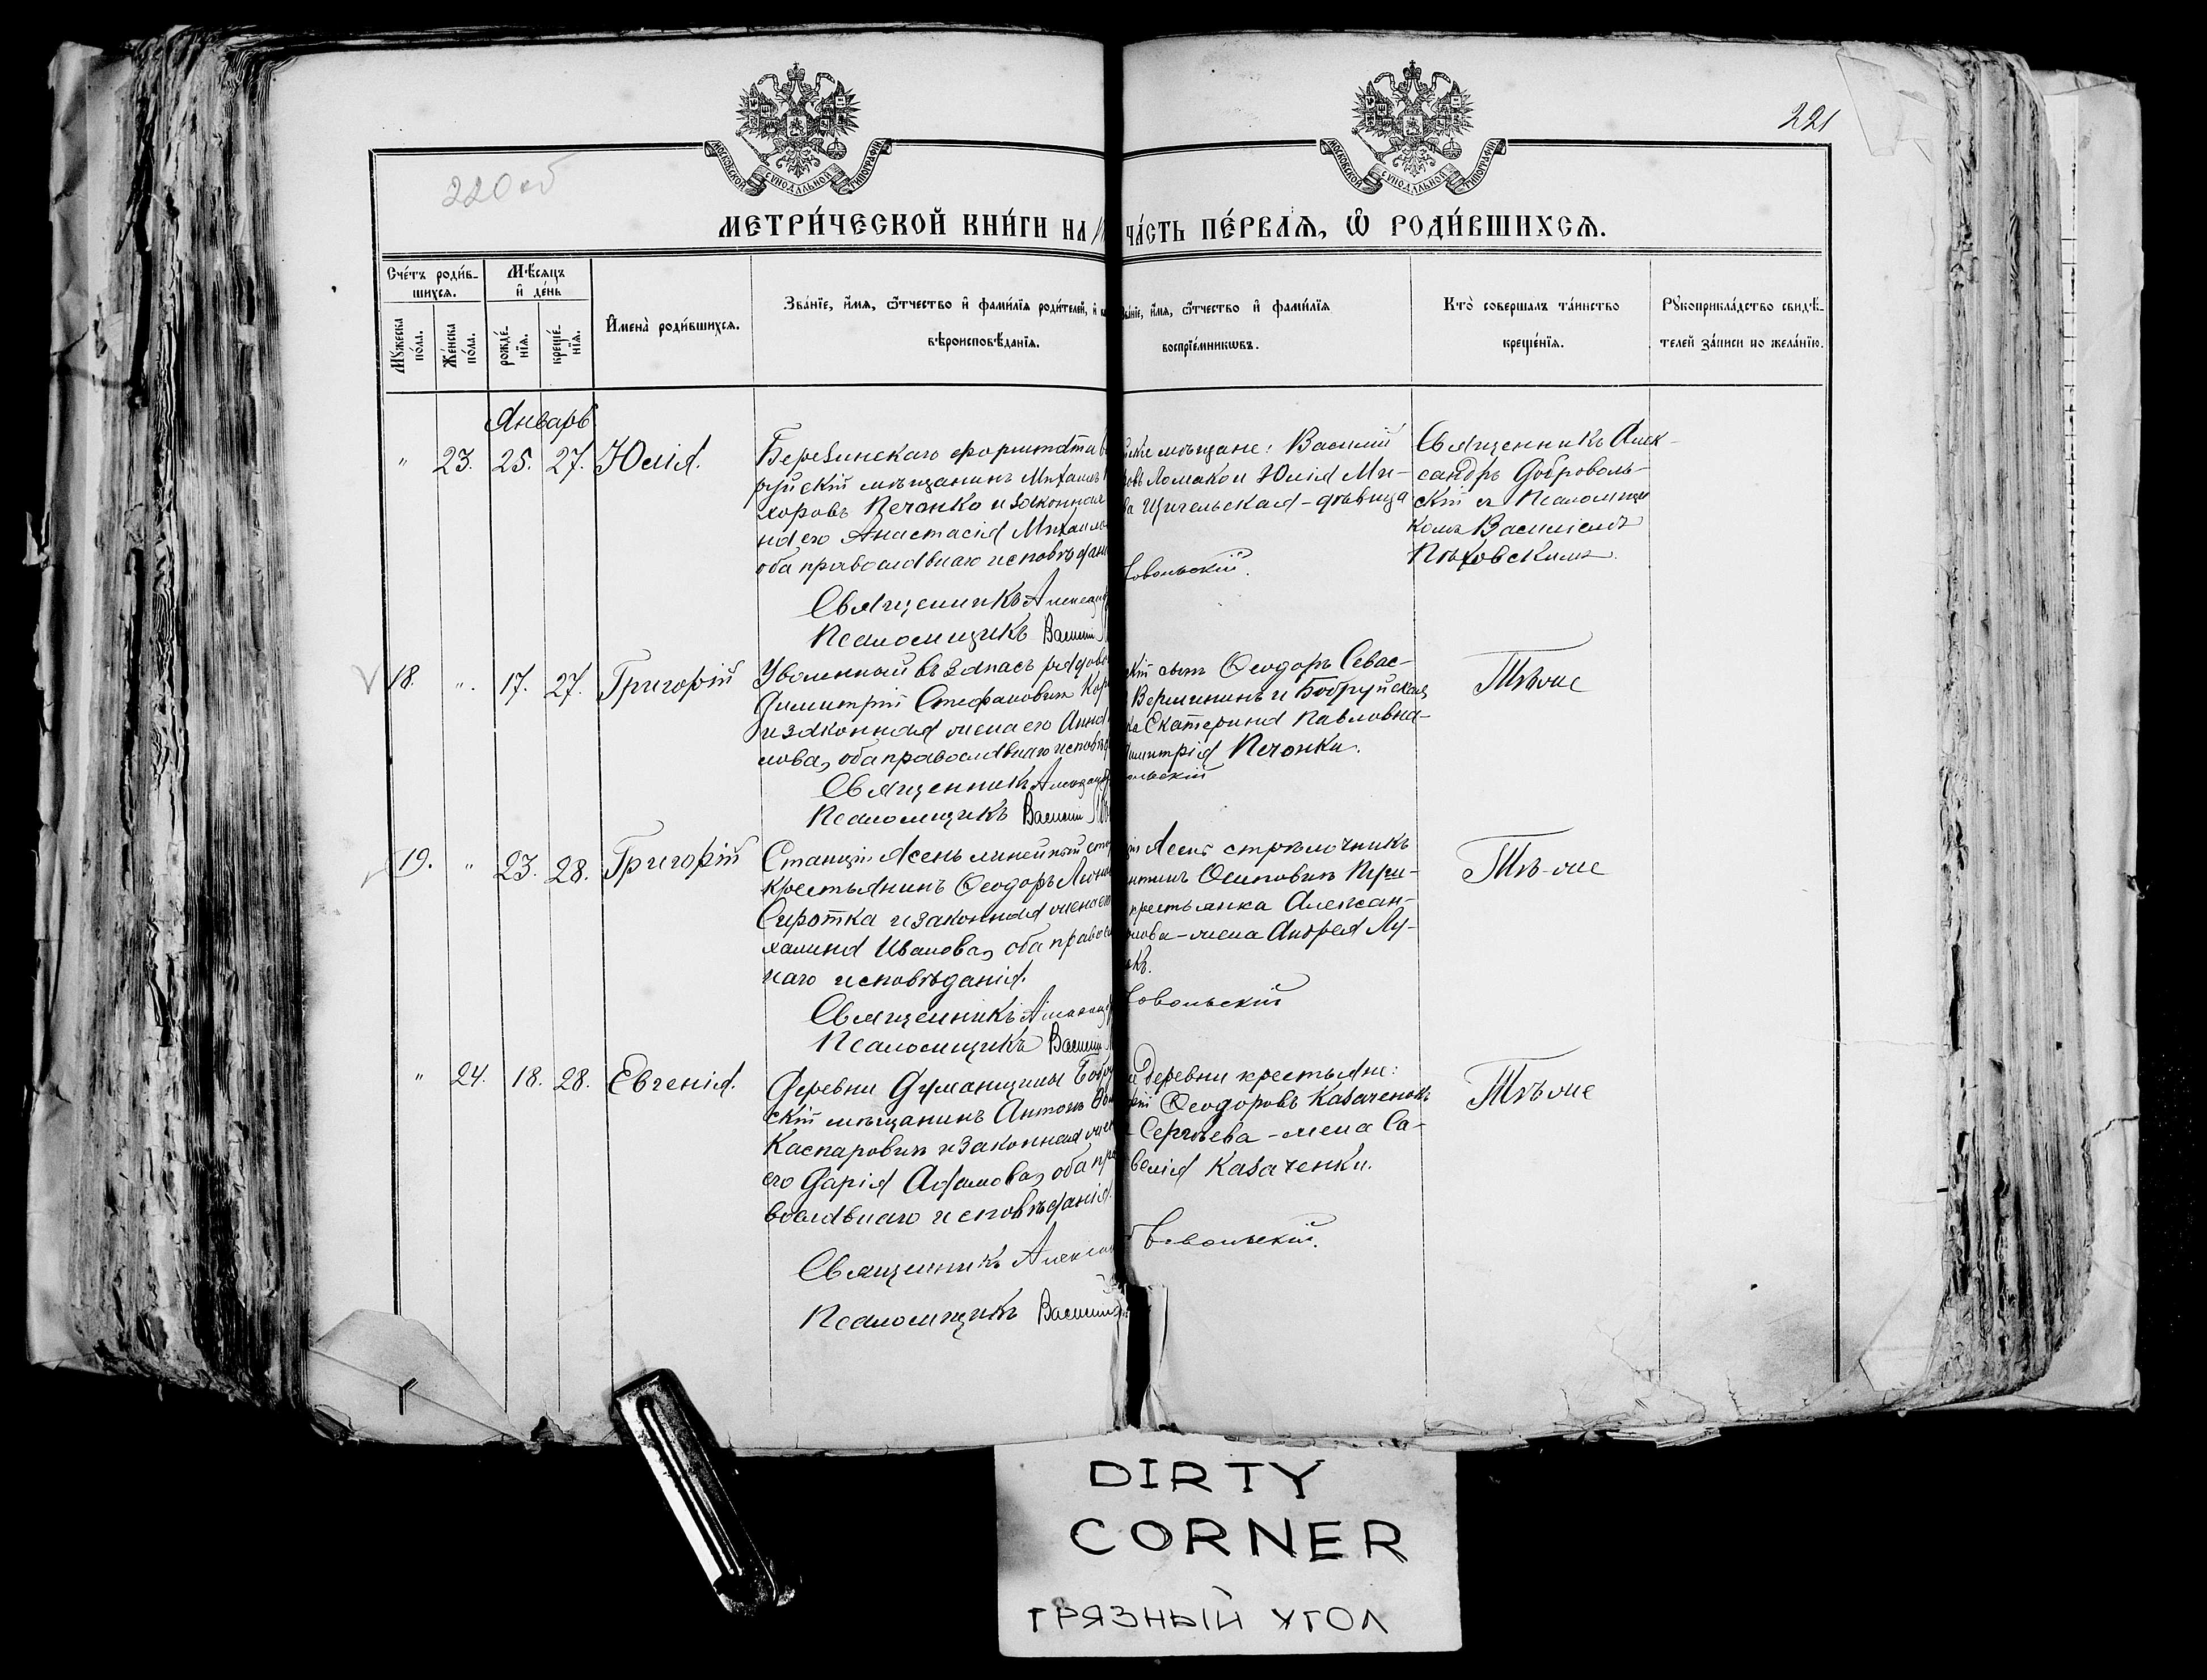 220 об
221
МОСКОВСКОЙ СѴНОДАЛЬНОЙ ТИПОГРАФІИ
МОСКОВСКОЙ СѴНОДАЛЬНОЙ ТИПОГРАФІИ
МЕТРИ́ЧЕСКОЙ КНИ́ГИ НА
ЧА́СТЬ ПЕ́РВАѦ, Ѽ РОДИ́ВШИХСѦ.
Сче́тъ роди́в-
шихсѧ.
Мꙋжеска по́ла.
Же́нска по́ла.
Мѣ́сѧцъ
и҆ де́нь
рожде́-
нїѧ.
креще́-
нїѧ.
И҆мена̀ роди́вшихсѧ.
Зва́нїе, и҆́мѧ, ѻ҆́тчество и҆ фами́лїѧ роди́телей, и҆
вѣроисповѣ́данїѧ.
Зва́нїе, и҆́мѧ, ѻ҆́тчество и҆ фами́лїѧ
воспрїе́мникѡвъ.
Кто̀ совершалъ та́инство
креще́нїѧ.
Рꙋкоприкла́дство свидѣ́-
телей за́писи по жела́нїю.
Январь
" 23. 25. 27. Юлія.
Березинскаго форштата
руйскій мѣщанинъ Михаилъ
хоровъ Печонко и законная
на его Анастасія Михаило
оба православнаго исповѣдан
Священникъ Александ
Псаломщикъ Василій
мѣщане: Василій
Ломако и Юлія Ми-
Щигельская - дѣвица
бовольскій.
Священникъ Алек-
сандръ Доброволь-
скій съ Псаломщи
комъ Василіемъ
18. " 17. 27. Григорій
Уволенный въ запасъ рядово
Димитрій Стефановичъ Кор
и законная жена его Анна
лова, оба православнаго исповѣд
Священникъ Александр
Псаломщикъ Василій
сынъ Ѳеодоръ Севас-
и Бобруйская
Екатерина Павловна-
имитрія Печонки.
ольскій
Тѣ же
19. " 23. 28. Григорій
Станціи Ясень линейный сто
крестьянинъ Ѳеодоръ
Сиротка и законная жена его
халина Иванова, оба правосл
наго исповѣданія.
Священникъ Александ
Псаломщикъ Василій
Ясень стрѣлочникъ
Осиповичъ При-
крестьянка Алексан-
лова - жена Андрея Лу-
окъ.
бовольскій
Тѣ-же
" 24. 18. 28. Евгенія.
Деревни Думанщины Бобру
скій мѣщанинъ Антонъ
Каспаровичъ и законная жен
его Дарія Адамова, оба пра
вославнаго исповѣданія.
Священникъ Алексан
Псаломщикъ Василій
деревни крестьяне:
Ѳеодоровъ Казаченокъ
Сергѣева - жена Са-
велія Казаченки.
бовольскій.
Тѣ же
DIRTY
CORNER
ГРЯЗНЫЙ УГОЛ